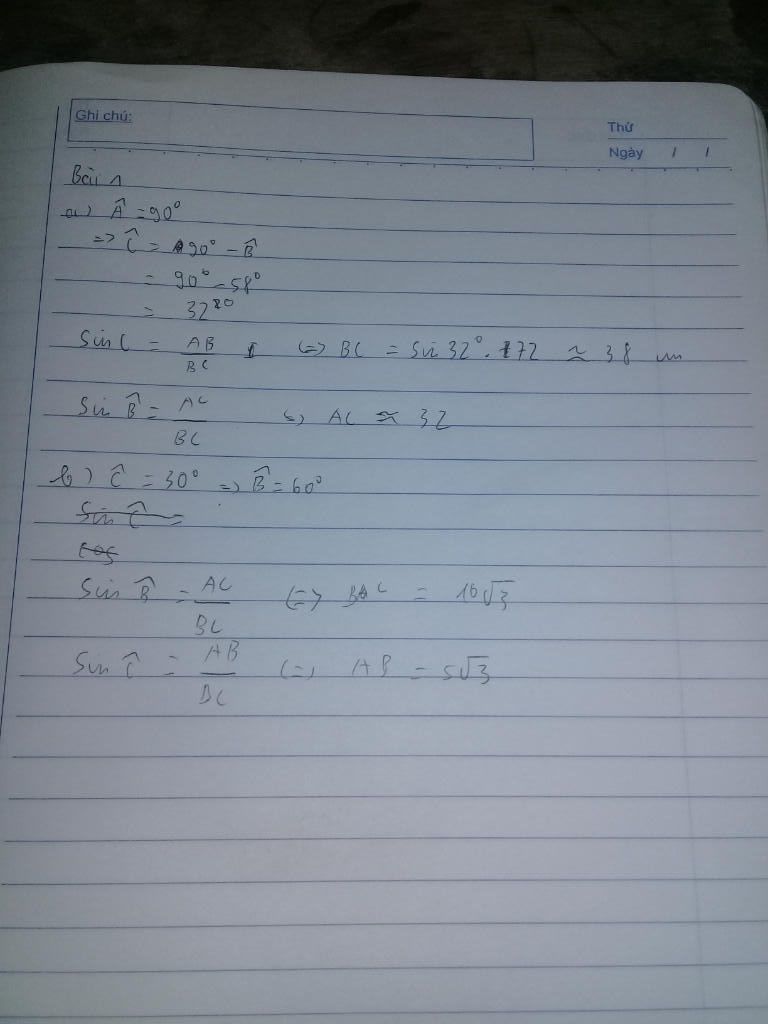 Ghi chú:
Thứ
Ngày / /
Bài 1
a) Â = 90°
=> Ĉ = 90° - B̂
= 90° - 58°
= 32°
Sin C = AB/BC <=> BC = Sin 32° . 72 ≈ 38 cm
Sin B̂ = AC/BC => AC ≈ 32
b) Ĉ = 30° => B̂ = 60°
Sin Ĉ =
Cos
Sin B̂ = AC/BC <=> BC = 10√3
Sin Ĉ = AB/BC <=> AB = 5√3